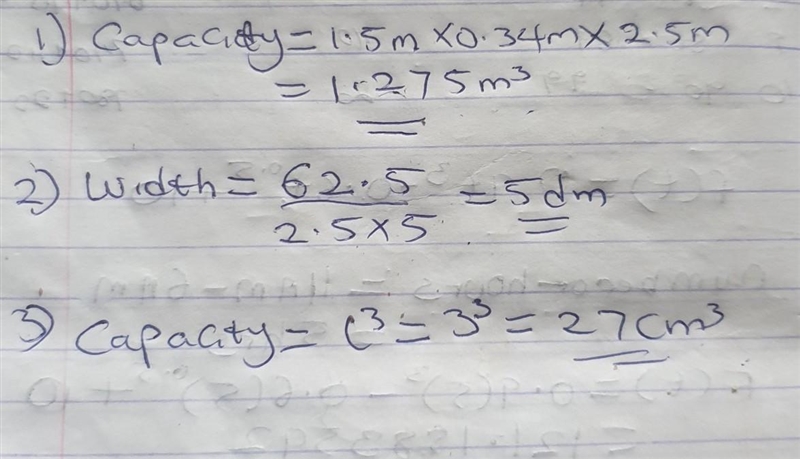 1) Capacity = 1.5m × 0.34m × 2.5m
= 1.275m³
2) Width = 62.5 / 2.5×5 = 5dm
3) Capacity = l³ = 3³ = 27cm³